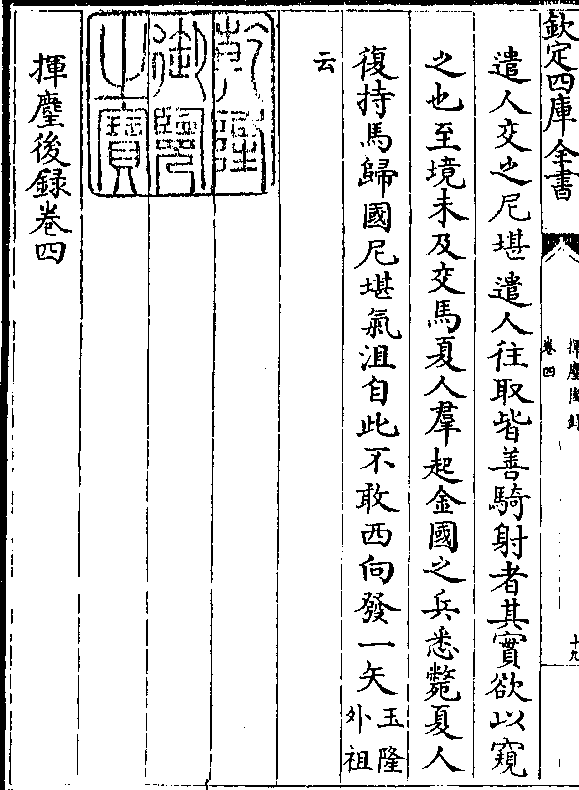 欽定四庫全書
揮麈後録
卷四
十九
遣人交之尼堪遣人往取皆善騎射者其實欲以窺
之也至境未及交馬夏人羣起金國之兵悉斃夏人
復持馬歸國尼堪氣沮自此不敢西向發一矢玉隆外祖
云
乾隆御覽之寶
揮麈後録卷四